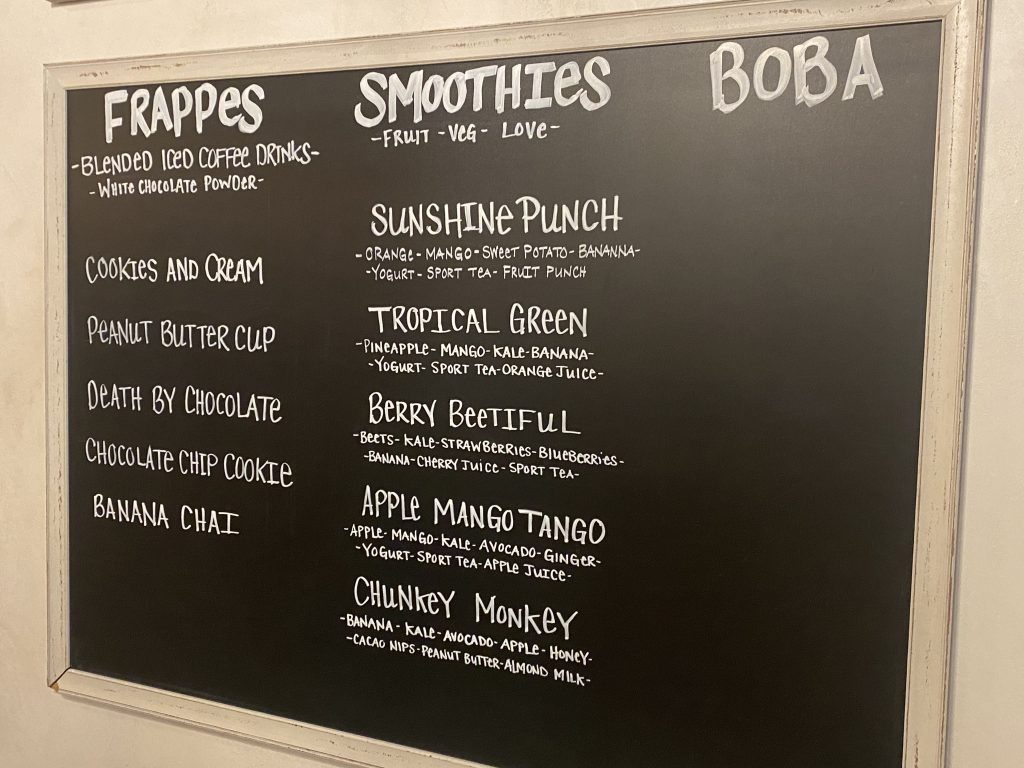 FRAPPes
-BLeNDeD ICeD COFFee DRINKS-
-WHITe CHOCOLATe POWDeR-
COOKIeS AND CReAM
PeANUT BUTTeR CUP
DeATH BY CHOCOLATe
CHOCOLATe CHIP COOKIe
BANANA CHAI
SMOOTHIeS
-FRUIT -VeG- LOVe-
SUNSHINe PUNCH
-ORANGe-MANGO-SWeeT POTATO-BANANNA-
-YOGURT-SPORT TeA-FRUIT PUNCH
TROPICAL GReeN
-PINeAPPLe-MANGO-KALe-BANANA-
-YOGURT-SPORT TeA-ORANGe JUICe-
BeRRY BeeTIFUL
-BeeTS-KALe-STRAWBeRRIeS-BLUeBeRRIeS-
-BANANA-CHeRRY JUICe-SPORT TeA-
APPLe MANGO TANGO
-APPLe-MANGO-KALe-AVOCADO-GINGeR-
-YOGURT-SPORT TeA-APPLe JUICe-
CHUNKeY MONKeY
-BANANA-KALe-AVOCADO-APPLe-HONeY-
-CACAO NIPS-PeANUT BUTTeR-ALMOND MILK-
BOBA